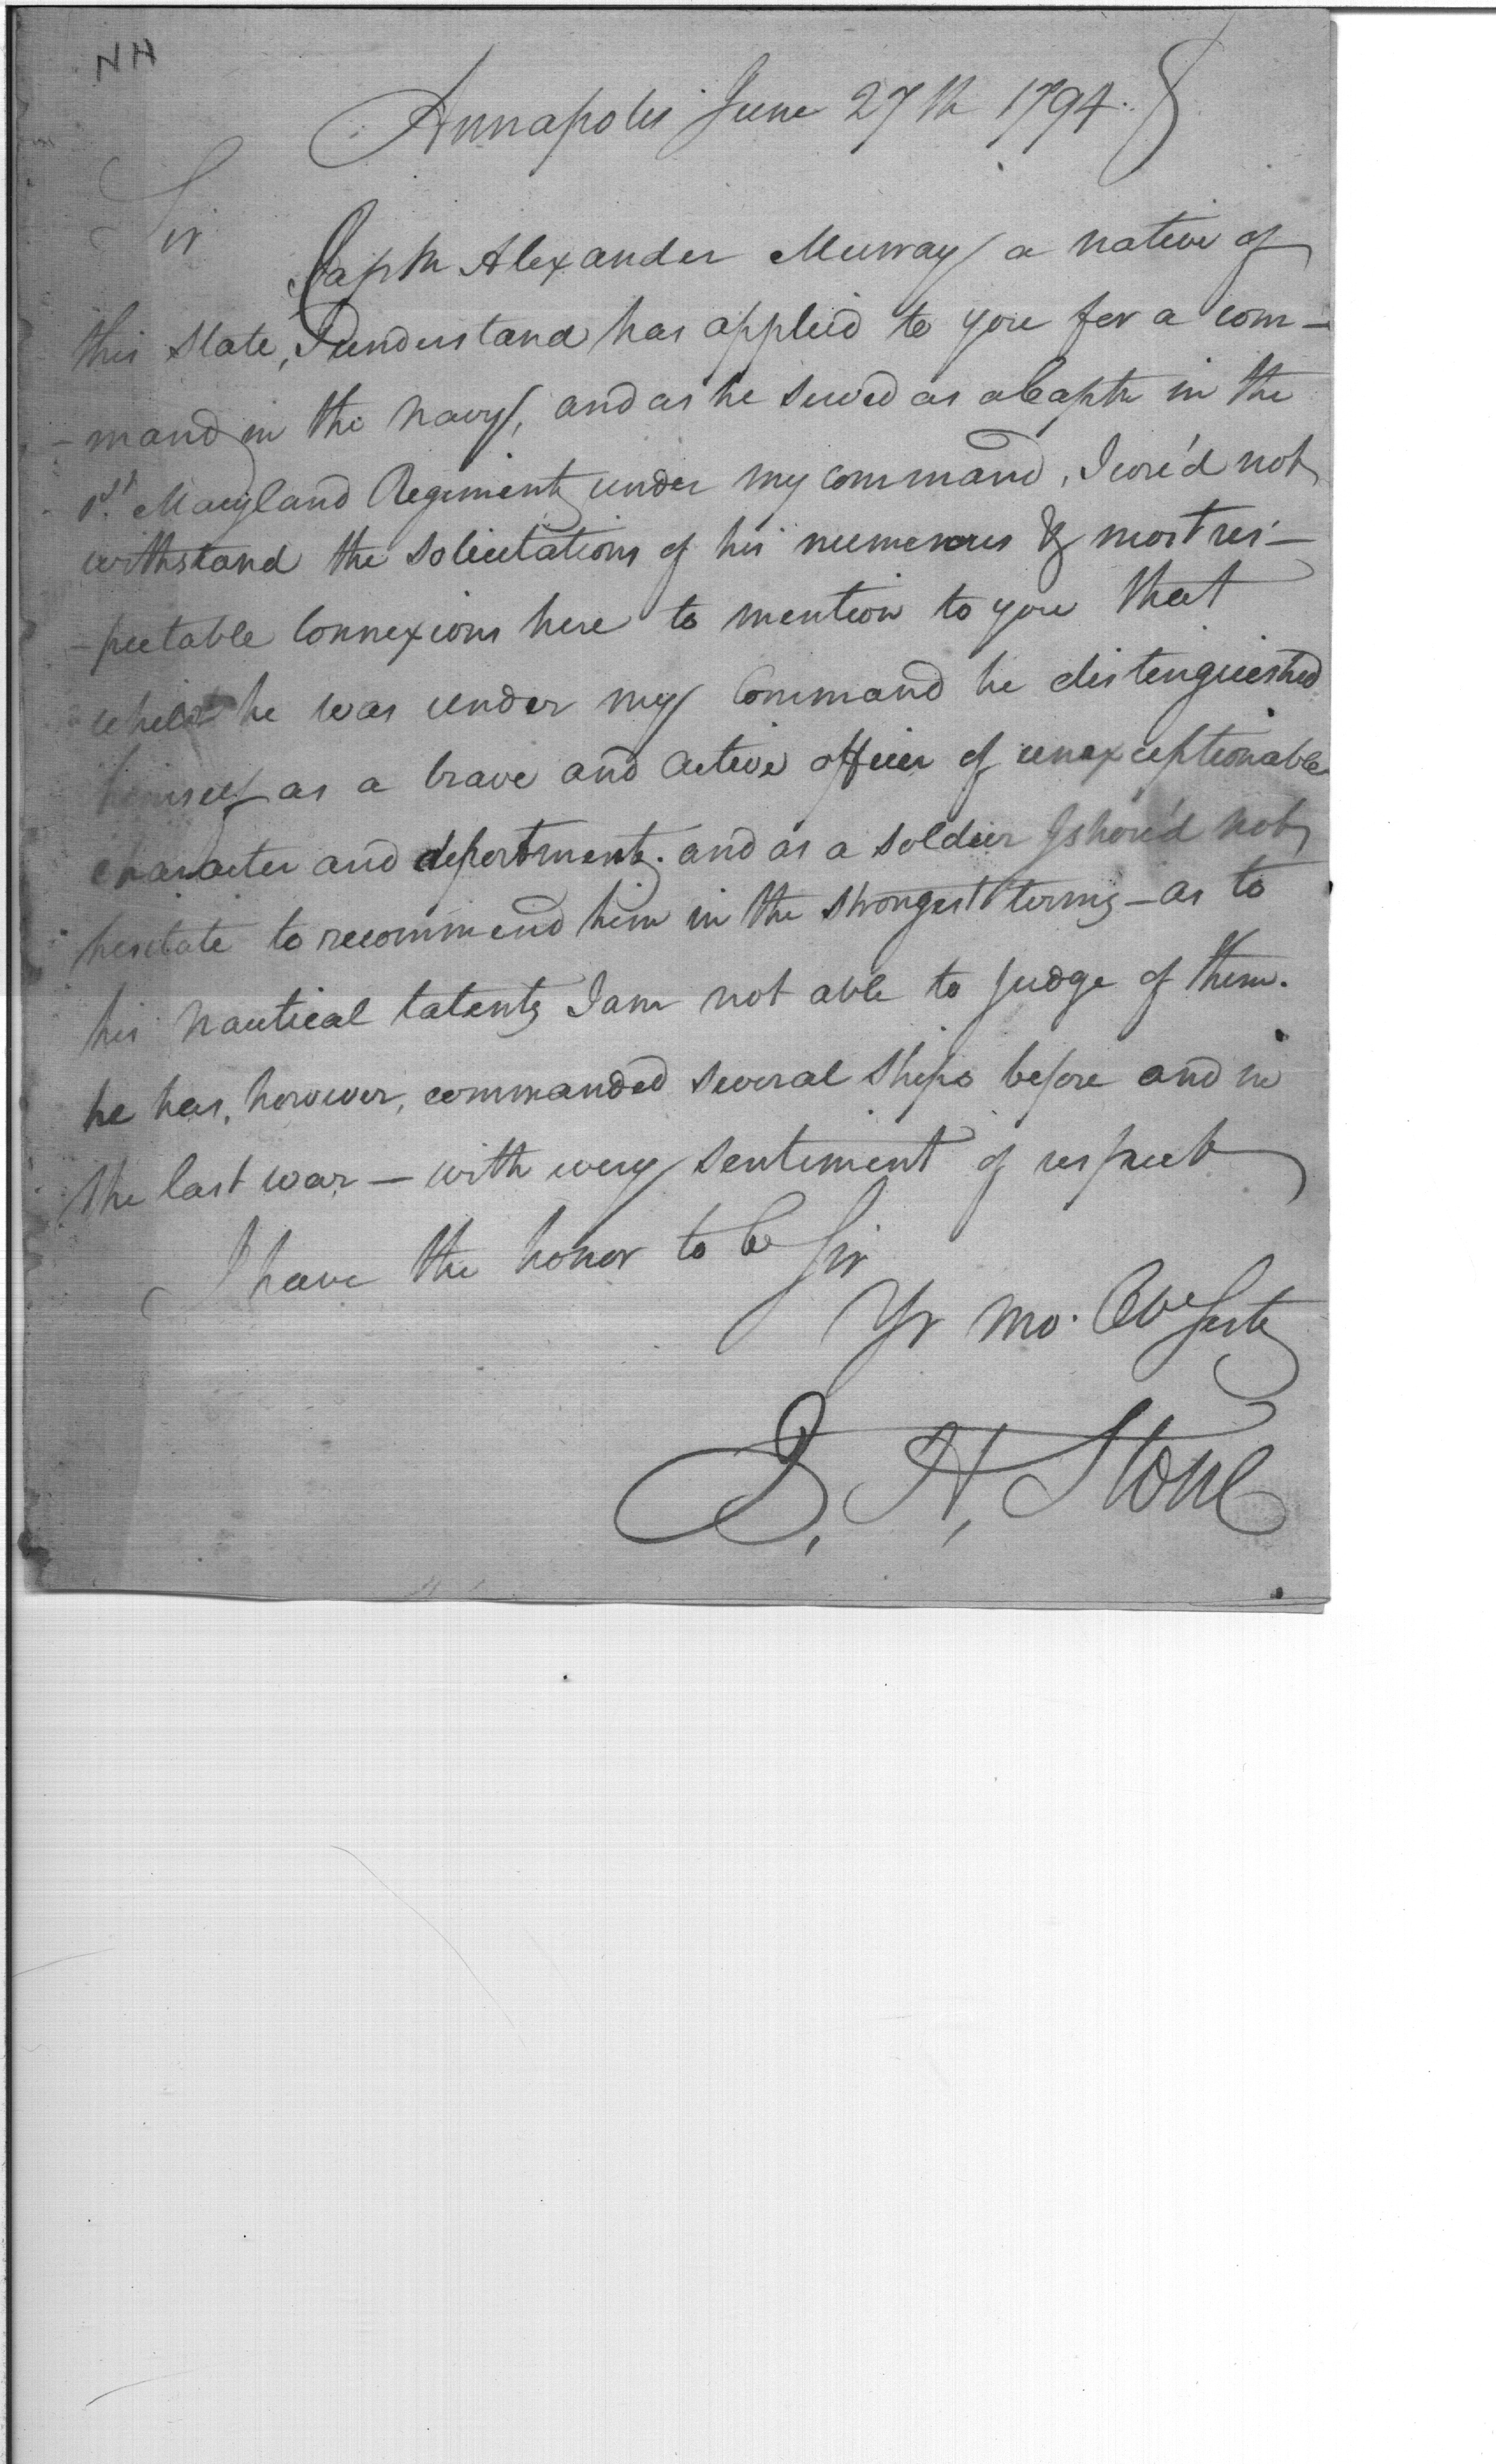 NH
Annapolis June 27th 1794.
Sir
Captn Alexander Murray a native of
this State, I understand has applied to you for a com-
-mand in the Navy, and as he served as a Captn in the
1st Maryland Regiment under my command, I cou'd not
withstand the solicitations of his numerous & most res-
-pectable Connexions here to mention to you that
whilst he was under my Command he distinguished
himself as a brave and active officer of unexceptionable
character and deportment. and as a soldier I shou'd not
hesitate to recommend him in the strongest terms - as to
his Nautical talents I am not able to judge of them.
he has, however, commanded several ships before and in
the last war - with every sentiment of respect
I have the honor to be Sir
Yr Mo. Obe Servt
J. H. Stone